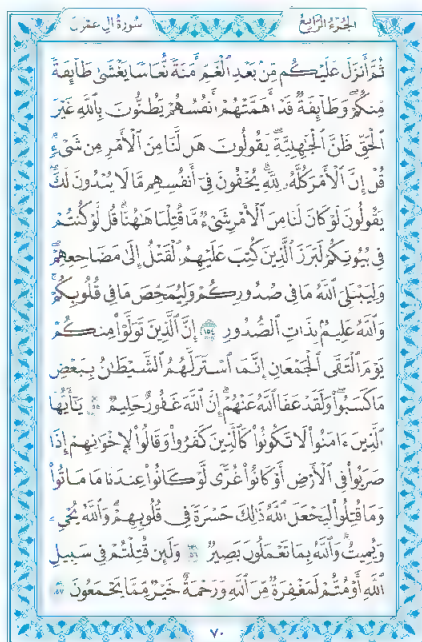 سُورَةُ آلِ عِمْرَانَ
الجُزْءُ الرَّابِعُ
ثُمَّ أَنزَلَ عَلَيْكُم مِّنۢ بَعْدِ ٱلْغَمِّ أَمَنَةً نُّعَاسًا يَغْشَىٰ طَآئِفَةً
مِّنكُمْ وَطَآئِفَةٌ قَدْ أَهَمَّتْهُمْ أَنفُسُهُمْ يَظُنُّونَ بِٱللَّهِ غَيْرَ
ٱلْحَقِّ ظَنَّ ٱلْجَٰهِلِيَّةِ يَقُولُونَ هَل لَّنَا مِنَ ٱلْأَمْرِ مِن شَىْءٍ
قُلْ إِنَّ ٱلْأَمْرَ كُلَّهُۥ لِلَّهِ يُخْفُونَ فِىٓ أَنفُسِهِم مَّا لَا يُبْدُونَ لَكَ
يَقُولُونَ لَوْ كَانَ لَنَا مِنَ ٱلْأَمْرِ شَىْءٌ مَّا قُتِلْنَا هَٰهُنَا قُل لَّوْ كُنتُمْ
فِى بُيُوتِكُمْ لَبَرَزَ ٱلَّذِينَ كُتِبَ عَلَيْهِمُ ٱلْقَتْلُ إِلَىٰ مَضَاجِعِهِمْ
وَلِيَبْتَلِىَ ٱللَّهُ مَا فِى صُدُورِكُمْ وَلِيُمَحِّصَ مَا فِى قُلُوبِكُمْ
وَٱللَّهُ عَلِيمٌۢ بِذَاتِ ٱلصُّدُورِ ١٥٤ إِنَّ ٱلَّذِينَ تَوَلَّوْا۟ مِنكُمْ
يَوْمَ ٱلْتَقَى ٱلْجَمْعَانِ إِنَّمَا ٱسْتَزَلَّهُمُ ٱلشَّيْطَٰنُ بِبَعْضِ
مَا كَسَبُوا۟ وَلَقَدْ عَفَا ٱللَّهُ عَنْهُمْ إِنَّ ٱللَّهَ غَفُورٌ حَلِيمٌ ١٥٥ يَٰٓأَيُّهَا
ٱلَّذِينَ ءَامَنُوا۟ لَا تَكُونُوا۟ كَٱلَّذِينَ كَفَرُوا۟ وَقَالُوا۟ لِإِخْوَٰنِهِمْ إِذَا
ضَرَبُوا۟ فِى ٱلْأَرْضِ أَوْ كَانُوا۟ غُزًّى لَّوْ كَانُوا۟ عِندَنَا مَا مَاتُوا۟
وَمَا قُتِلُوا۟ لِيَجْعَلَ ٱللَّهُ ذَٰلِكَ حَسْرَةً فِى قُلُوبِهِمْ وَٱللَّهُ يُحْىِۦ
وَيُمِيتُ وَٱللَّهُ بِمَا تَعْمَلُونَ بَصِيرٌ ١٥٦ وَلَئِن قُتِلْتُمْ فِى سَبِيلِ
ٱللَّهِ أَوْ مُتُّمْ لَمَغْفِرَةٌ مِّنَ ٱللَّهِ وَرَحْمَةٌ خَيْرٌ مِّمَّا يَجْمَعُونَ ١٥٧
٧٠